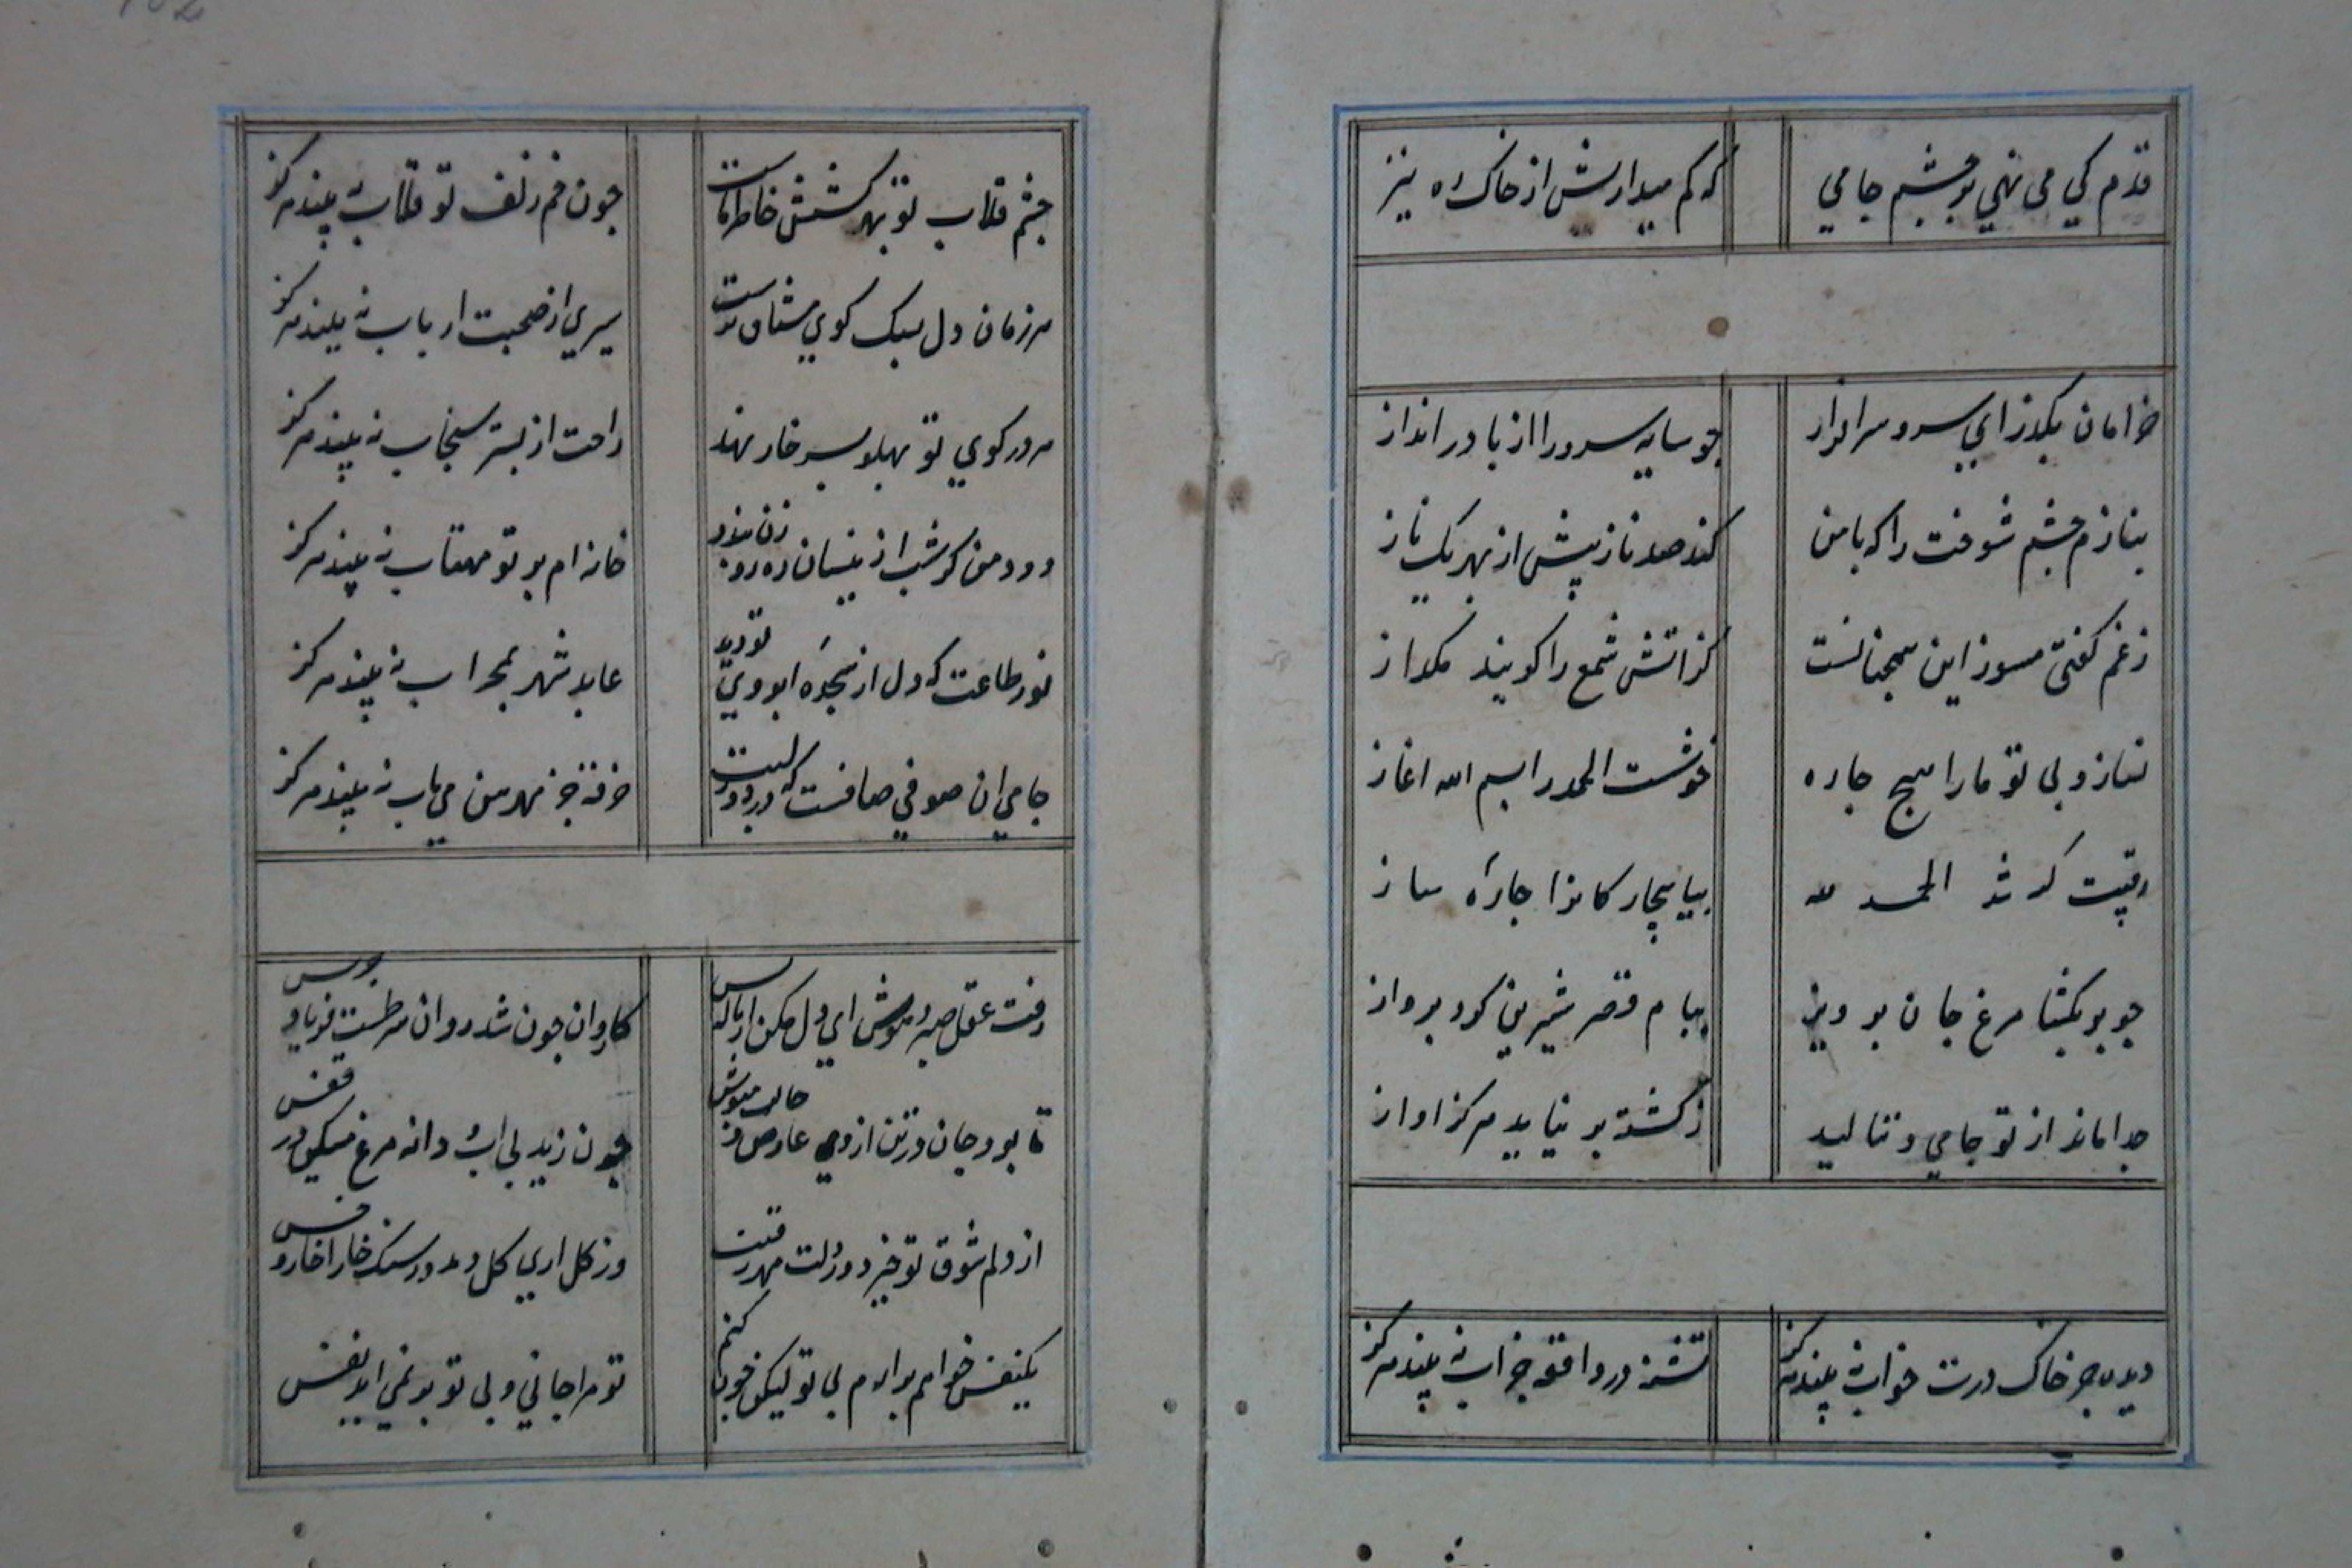 قدم کي می نهي بر چشم جامي که کم میدارش از خاک ره نیز
خرامان بگذر اي سرو سرافراز جو سایه سرو را از پا در انداز
بنازم چشم شوخت را که با من کند صد ناز پیش از بهر یک ناز
ز غم کفتی مسوز این همچنانست کز اتش شمع را کویند مکداز
نسازد بی تو ما را هیج جاره
خوشست الحمد را بسم الله اغاز
رقیبت کر شد الحمد لله بیا بیچارکانرا جارهٔ ساز
جو بر بکشتا مرغ جان برویز ببام قصر شیرین کرد برواز
جدا ماند از تو جامي و ننالید ز کشته بر نیاید هرکز اواز
دیده جز خاک درت خواب نه بیند هرکز تشنه در واقعه جز اب نه بیند هرکز
جشم قلاب تو بهر کشش خاطر ماست جون خم زلف تو قلاب نه بیند هرکز
هر زمان دل بسک کوي تو مشتاق ترست سیري از صحبت ارباب نه بیند هرکز
هر در کوي تو بهلو بسر خار نهند راحت از بستر سنجاب نه بیند هرکز
دود من کر شب ازینسان ره روزن بندد خانه ام بر تو مهتاب نه بیند هرکز
نور طاعت که دل از سجدهٔ ابروي تو دید عابد شهر بمحراب نه بیند هرکز
جامي ان صوفي صافست که در دور لبت خرقه جز رهن مي ناب نه بیند هرکز
رفت عقل و صبر و هوش اي دل مکن از ناله بس کاروان جون شد روان شرطست فریاد جرس
تا بود جان در تن از وي عارض و خالت مپوش جون زید بی اب و دانه مرغ مسکین در قفس
از دلم شوق تو خیزد وز دلت مهر رقیب وز کل اري کل دمد وز سنک خارا خار و خس
یکنفس خواهم برارم بی تو لیکن جون کنم تو مرا جاني و بی تو بر نمي اید نفس